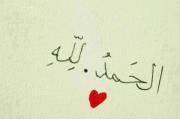 الحَمدُ.لِلَّهِ